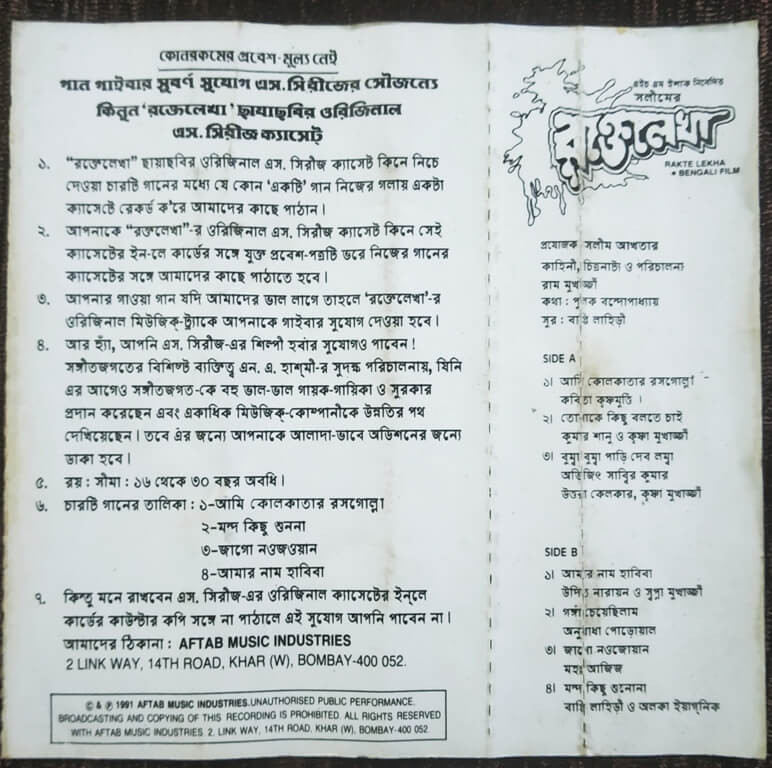 কোনরকমের প্রবেশ-মূল্য নেই
গান গাইবার সুবর্ণ সুযোগ এস. সিরীজের সৌজন্যে
কিনুন ‘রক্তেলেখা’ ছায়াছবির ওরিজিনাল
এস. সিরীজ ক্যাসেট্
১. “রক্তেলেখা” ছায়াছবির ওরিজিনাল এস. সিরীজ ক্যাসেট কিনে নিচে
দেওয়া চারটি গানের মধ্যে যে কোন ‘একটি’ গান নিজের গলায় একটা
ক্যাসেটে রেকর্ড ক’রে আমাদের কাছে পাঠান।
২. আপনাকে “রক্তলেখা”-র ওরিজিনাল এস. সিরীজ ক্যাসেট কিনে সেই
ক্যাসেটের ইন-লে কার্ডের সঙ্গে যুক্ত প্রবেশ-পত্রটি ভরে নিজের গানের
ক্যাসেটের সঙ্গে আমাদের কাছে পাঠাতে হবে।
৩. আপনার গাওয়া গান যদি আমাদের ভাল লাগে তাহলে ‘রক্তেলেখা’-র
ওরিজিনাল মিউজিক্-ট্র্যাকে আপনাকে গাইবার সুযোগ দেওয়া হবে।
৪. আর হ্যাঁ, আপনি এস. সিরীজ-এর শিল্পী হবার সুযোগও পাবেন!
সঙ্গীতজগতের বিশিষ্ট ব্যক্তিত্ব এন. এ. হাশ্মী-র সুদক্ষ পরিচালনায়, যিনি
এর আগেও সঙ্গীতজগত-কে বহু ভাল-ভাল গায়ক-গায়িকা ও সুরকার
প্রদান করেছেন এবং একাধিক মিউজিক্-কোম্পানীকে উন্নতির পথ
দেখিয়েছেন। তবে এর জন্যে আপনাকে আলাদা-ভাবে অডিশনের জন্যে
ডাকা হবে।
৫. রয়: সীমা: ১৬ থেকে ৩০ বছর অবধি।
৬. চারটি গানের তালিকা: ১-আমি কোলকাতার রসগোল্লা
২-মন্দ কিছু শুননা
৩-জাগো নওজওয়ান
৪-আমার নাম হাবিবা
৭. কিন্তু মনে রাখবেন এস. সিরীজ-এর ওরিজিনাল ক্যাসেটের ইন্‌লে
কার্ডের কাউন্টার কপি সঙ্গে না পাঠালে এই সুযোগ আপনি পাবেন না।
আমাদের ঠিকানা: AFTAB MUSIC INDUSTRIES
2 LINK WAY, 14TH ROAD, KHAR (W), BOMBAY-400 052.
© & ℗ 1991 AFTAB MUSIC INDUSTRIES.UNAUTHORISED PUBLIC PERFORMANCE.
BROADCASTING AND COPYING OF THIS RECORDING IS PROHIBITED. ALL RIGHTS RESERVED
WITH AFTAB MUSIC INDUSTRIES. 2. LINK WAY, 14TH ROAD, KHAR (W), BOMBAY-400 052
এইচ এম ইশাক নিবেদিত
সলীমের
রক্তেলেখা
RAKTE LEKHA
• BENGALI FILM
প্রযোজক সলীম আখতার
কাহিনী, চিত্রনাট্য ও পরিচালনা
রাম মুখার্জ্জী
কথা : পুলক বন্দোপাধ্যায়
সুর : বাপ্পি লাহিড়ী
SIDE A
১। আমি কোলকাতার রসগোল্লা
কবিতা কৃষ্ণমূর্ত্তি।
২। তোমাকে কিছু বলতে চাই
কুমার শানু ও কৃষ্ণা মুখার্জ্জী
৩। বুম্বা বুম্বা পাড়ি দেব লম্বা
অভিজিৎ সাব্বির কুমার
উত্তরা কেলকার, কৃষ্ণা মুখার্জ্জী
SIDE B
১। আমার নাম হাবিবা
উদিত নারায়ন ও সুপ্না মুখার্জ্জী
২। গঙ্গা চেয়েছিলাম
অনুরাধা পোড়োয়াল
৩। জাগো নওজোয়ান
মহঃ আজিজ
৪। মন্দ কিছু শুনোনা
বাপ্পি লাহিড়ী ও অলকা ইয়াগনিক